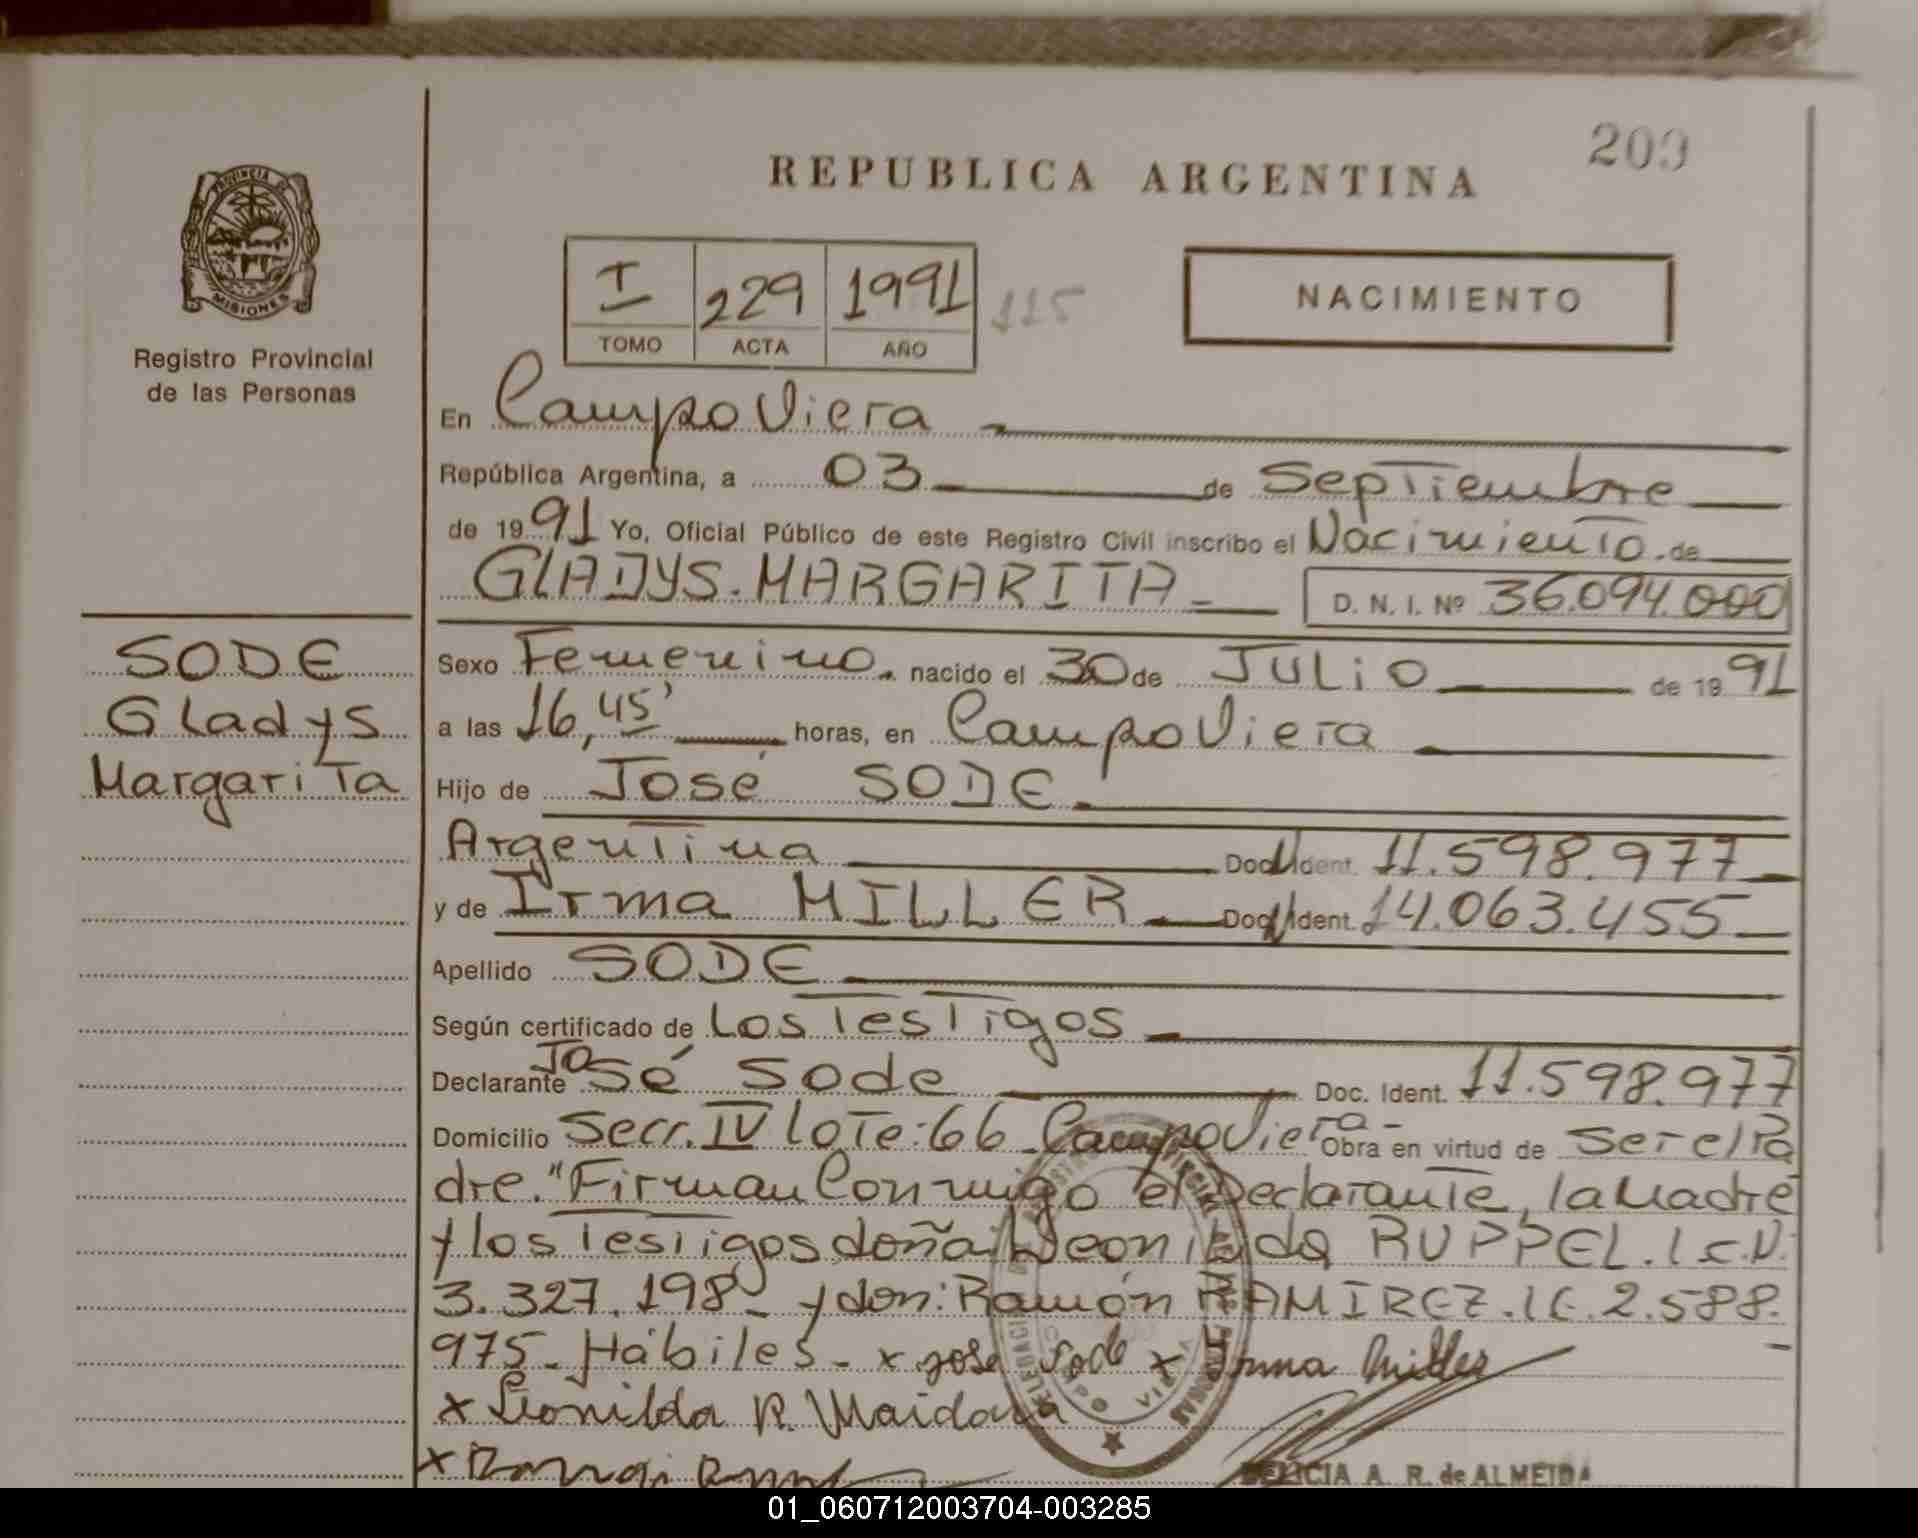 209
REPUBLICA ARGENTINA
PROVINCIA DE
MISIONES
Registro Provincial
de las Personas
I 229 1991 115
TOMO ACTA AÑO
NACIMIENTO
En Campo Viera
República Argentina, a 03 de Septiembre
de 1991 Yo, Oficial Público de este Registro Civil inscribo el Nacimiento de
GLADYS. MARGARITA D. N. I. Nº 36.094.000
SODE
Gladys
Margarita
Sexo Femenino. nacido el 30 de JULIO de 1991
a las 16,45' horas, en Campo Viera
Hijo de José SODE
Argentina Doc. Ident. 11.598.977
y de Irma MILLER Doc. Ident. 14.063.455
Apellido SODE
Según certificado de Los Testigos
Declarante José Sode Doc. Ident. 11.598.977
Domicilio Secc. IV Lote: 66 Campo Viera- Obra en virtud de ser el Pa
dre. "Firman Conmigo el Declarante, la Madre
y los Testigos doña: Leonilda RUPPEL. L C. N.
3.327.198- y don: Ramón RAMIREZ. LE. 2.588.
975- Hábiles- x jose sode x Irma Miller
x Leonilda R. Maidana
x
DELICIA A. R. de ALMEIDA
01_060712003704-003285